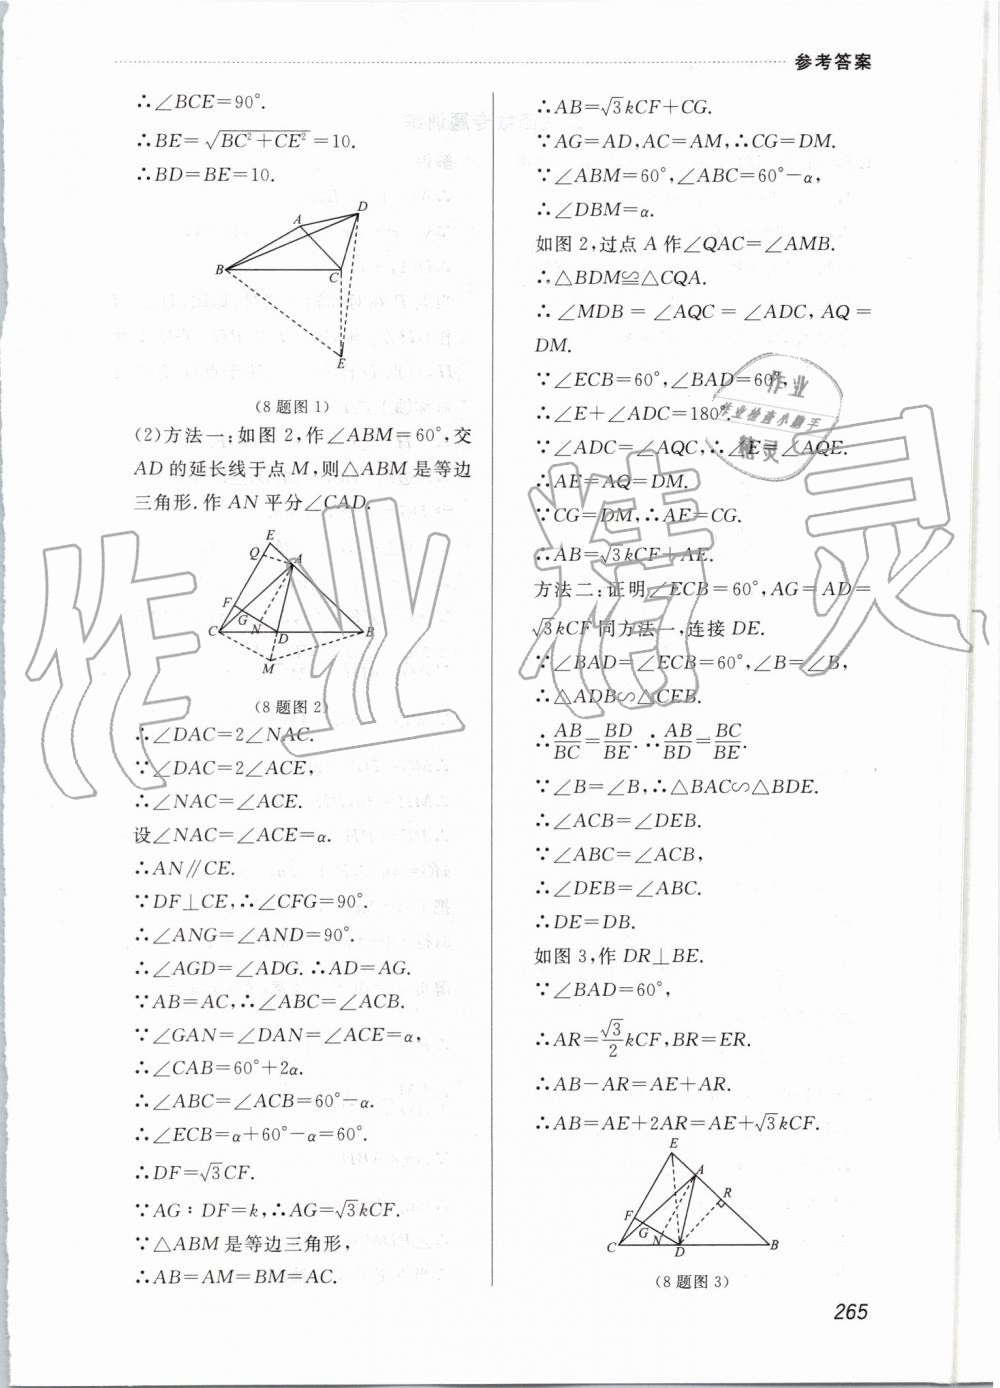 参考答案
∴∠BCE=90°.
∴BE=√(BC²+CE²)=10.
∴BD=BE=10.
A
D
B
C
E
(8题图1)
(2)方法一:如图2,作∠ABM=60°,交
AD的延长线于点M,则△ABM是等边
三角形.作AN平分∠CAD.
E
Q
A
F
G
C
N
D
B
M
(8题图2)
∴∠DAC=2∠NAC.
∵∠DAC=2∠ACE,
∴∠NAC=∠ACE.
设∠NAC=∠ACE=α.
∴AN∥CE.
∵DF⊥CE,∴∠CFG=90°.
∴∠ANG=∠AND=90°.
∴∠AGD=∠ADG.∴AD=AG.
∵AB=AC,∴∠ABC=∠ACB.
∵∠GAN=∠DAN=∠ACE=α,
∴∠CAB=60°+2α.
∴∠ABC=∠ACB=60°−α.
∴∠ECB=α+60°−α=60°.
∴DF=√3CF.
∵AG∶DF=k,∴AG=√3kCF.
∵△ABM是等边三角形,
∴AB=AM=BM=AC.
∴AB=√3kCF+CG.
∵AG=AD,AC=AM,∴CG=DM.
∵∠ABM=60°,∠ABC=60°−α,
∴∠DBM=α.
如图2,过点A作∠QAC=∠AMB.
∴△BDM≌△CQA.
∴∠MDB=∠AQC=∠ADC,AQ=
DM.
∵∠ECB=60°,∠BAD=60°,
∴∠E+∠ADC=180°.
∵∠ADC=∠AQC,∴∠E=∠AQE.
∴AE=AQ=DM.
∵CG=DM,∴AE=CG.
∴AB=√3kCF+AE.
方法二:证明∠ECB=60°,AG=AD=
√3kCF同方法一,连接DE.
∵∠BAD=∠ECB=60°,∠B=∠B,
∴△ADB∽△CEB.
∴AB/BC=BD/BE.∴AB/BD=BC/BE.
∵∠B=∠B,∴△BAC∽△BDE.
∴∠ACB=∠DEB.
∵∠ABC=∠ACB,
∴∠DEB=∠ABC.
∴DE=DB.
如图3,作DR⊥BE.
∵∠BAD=60°,
∴AR=√3/2kCF,BR=ER.
∴AB−AR=AE+AR.
∴AB=AE+2AR=AE+√3kCF.
E
A
R
F
G
C
N
D
B
(8题图3)
265
作业
作业检查小助手
精灵
作业精灵